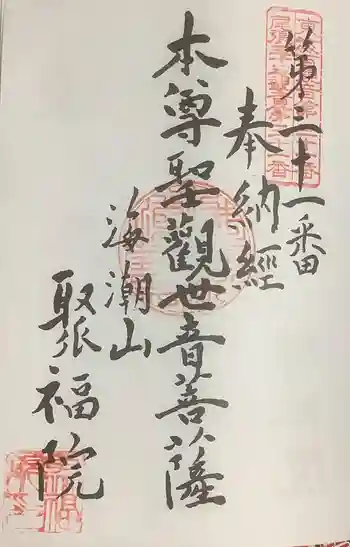 第三十一番
奉納経
本尊聖觀世音菩薩
海潮山
聚福院